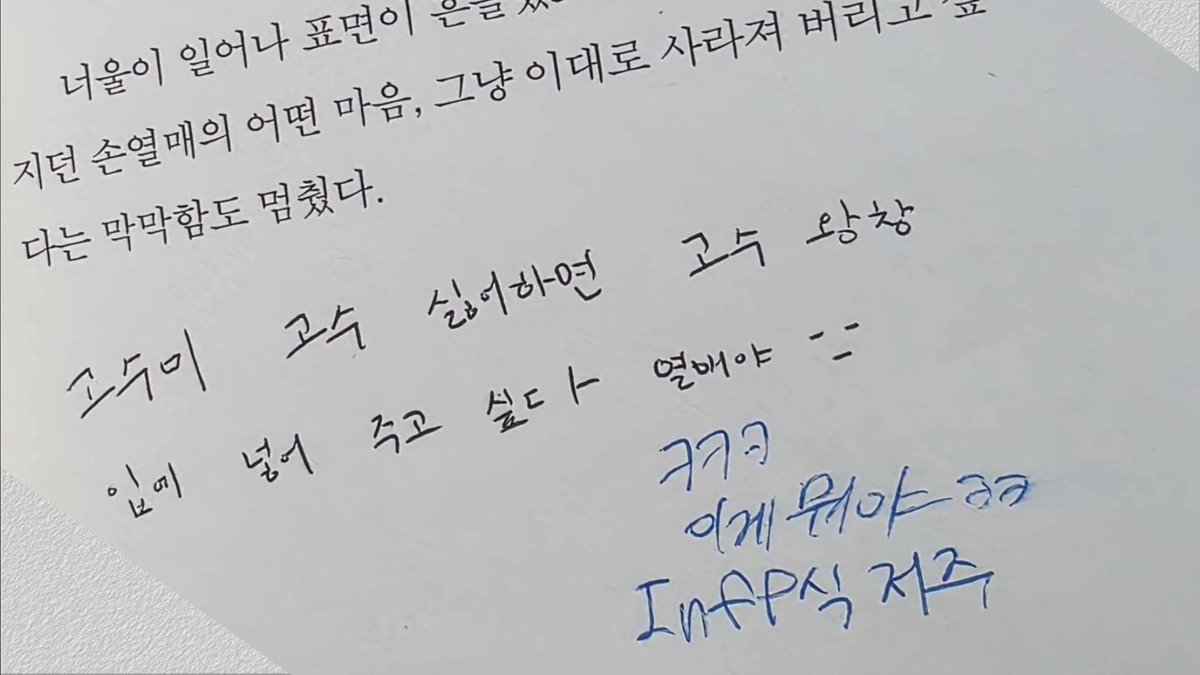 너울이 일어나 표면이
지던 손열매의 어떤 마음, 그냥 이대로 사라져 버리고 싶
다는 막막함도 멈췄다.
고수미 고수 싫어하면 고수 왕창
입에 넣어 주고 싶다 열매야
ㅋㅋㅋ
이게 뭐야 ㅋㅋ
Infp식 저주